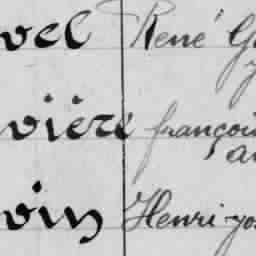 vel René G
vière françois
a
vin Henri-jos